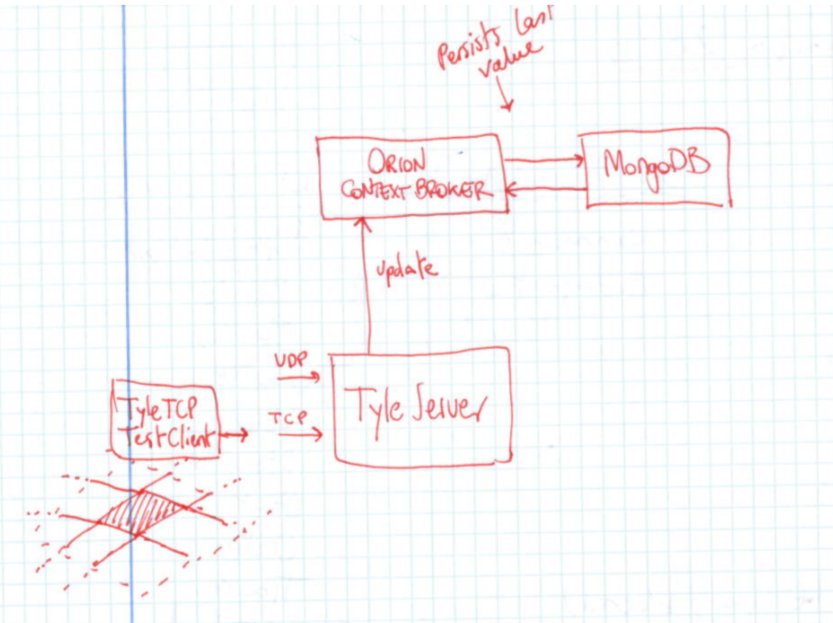 Persists Last
value
ORION
CONTEXT BROKER
MongoDB
update
UDP
TCP
Tyle Server
TyleTCP
TestClient